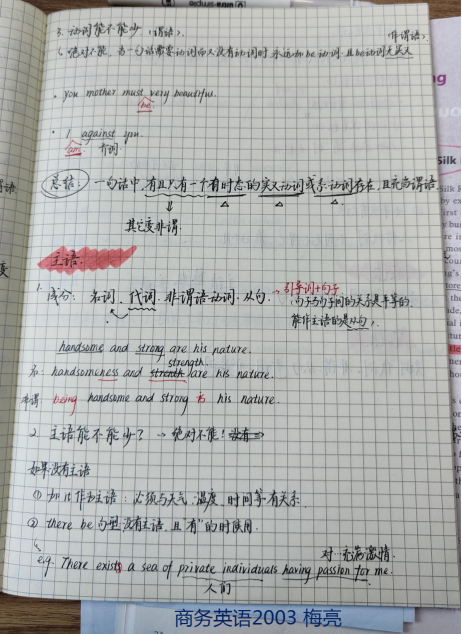 3. 动词能不能少 (谓语). (非谓语).
绝对不能, 当一句话需要动词而又没有动词时, 永远加be动词, 且be动词无实义
· you mother must very beautiful.
be
· I against you.
am 介词
总结: 一句话中, 有且只有一个有时态的实义动词或系动词存在, 且充当谓语.
其它变非谓.
主语:
1. 成分: 名词、代词、非谓语动词、从句. → 引导词+句子
句子与句子间的关系是平等的,
能作主语的是从句.
handsome and strong are his nature.
strength
名: handsomeness and are his nature.
非谓: being handsome and strong is his nature.
2. 主语能不能少? → 绝对不能!
如果没有主语
① 加it作为主语: 必须与天气、温度、时间等有关系
② there be 句型: 没有主语, 且"有"的时候用.
对…充满激情.
eg. There exists a sea of private individuals having passion for me.
人们
商务英语2003 梅亮
Silk